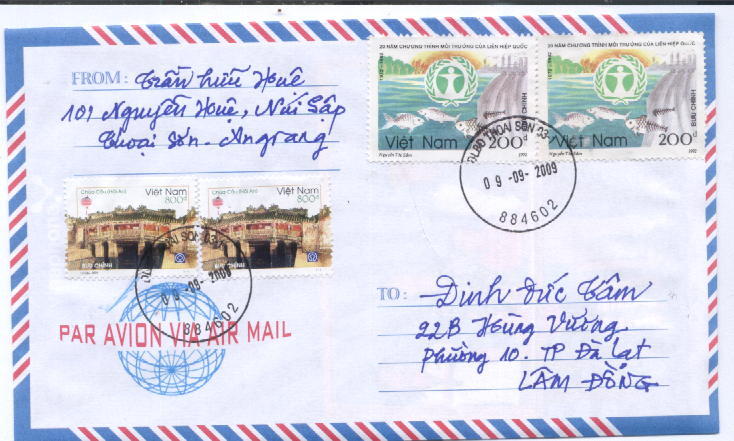 FROM: Trần Hữu Huê
101 Nguyễn Huệ, Núi Sập
Thoại Sơn - Angiang
20 NĂM CHƯƠNG TRÌNH MÔI TRƯỜNG CỦA LIÊN HIỆP QUỐC
1972-1992
BƯU CHÍNH
Việt Nam 200đ
Nguyễn Thị Sâm 1992
20 NĂM CHƯƠNG TRÌNH MÔI TRƯỜNG CỦA LIÊN HIỆP QUỐC
1972-1992
BƯU CHÍNH
Việt Nam 200đ
Nguyễn Thị Sâm 1992
THOAI SON
09-09-2009
884602
Chùa Cầu (Hội An) Việt Nam
800đ
BƯU CHÍNH
Chùa Cầu (Hội An) Việt Nam
800đ
BƯU CHÍNH
THOAI SON
09-09-2009
884602
PAR AVION VIA AIR MAIL
TO: Đinh Đức Tâm
22B Hùng Vương
Phường 10. TP Đà Lạt
LÂM ĐỒNG